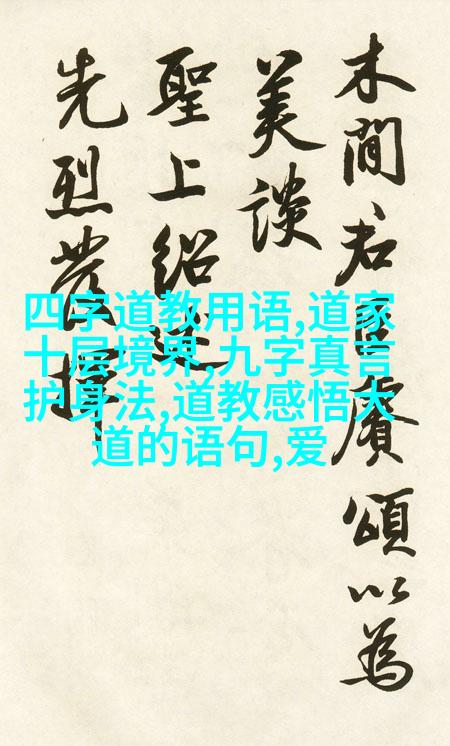 木間君臣賡頌以為
美談
聖上紹述
先烈發揮
四字道教用语,道家
十层境界,九字真言
护身法,道教感悟大
道的语句,爱